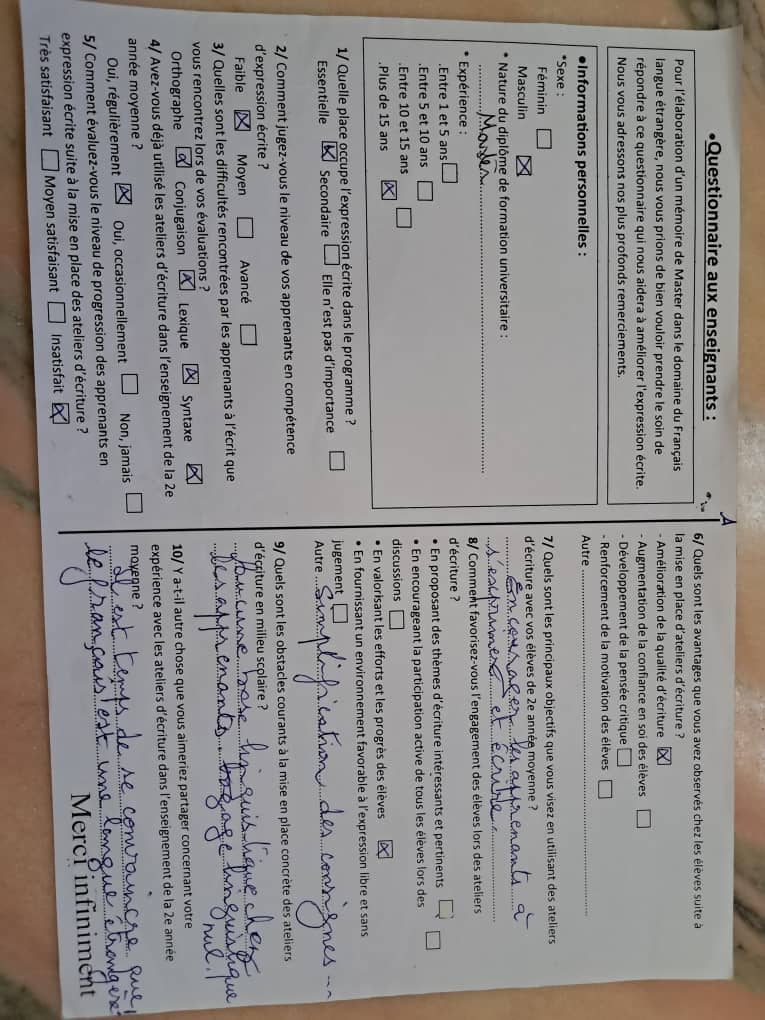 •Questionnaire aux enseignants :
Pour l'élaboration d'un mémoire de Master dans le domaine du Français
langue étrangère, nous vous prions de bien vouloir prendre le soin de
répondre à ce questionnaire qui nous aidera à améliorer l'expression écrite.
Nous vous adressons nos plus profonds remerciements.
•Informations personnelles :
*Sexe :
Féminin ☐
Masculin ☒
* Nature du diplôme de formation universitaire :
Master
* Expérience :
.Entre 1 et 5 ans ☐
.Entre 5 et 10 ans ☐
.Entre 10 et 15 ans ☐
.Plus de 15 ans ☒
1/ Quelle place occupe l'expression écrite dans le programme ?
Essentielle ☒ Secondaire ☐ Elle n'est pas d'importance ☐
2/ Comment jugez-vous le niveau de vos apprenants en compétence
d'expression écrite ?
Faible ☒ Moyen ☐ Avancé ☐
3/ Quelles sont les difficultés rencontrées par les apprenants à l'écrit que
vous rencontrez lors de vos évaluations ?
Orthographe ☒ Conjugaison ☒ Lexique ☒ Syntaxe ☒
4/ Avez-vous déjà utilisé les ateliers d'écriture dans l'enseignement de la 2e
année moyenne ?
Oui, régulièrement ☒ Oui, occasionnellement ☐ Non, jamais ☐
5/ Comment évaluez-vous le niveau de progression des apprenants en
expression écrite suite à la mise en place des ateliers d'écriture ?
Très satisfaisant ☐ Moyen satisfaisant ☐ Insatisfait ☒
6/ Quels sont les avantages que vous avez observés chez les élèves suite à
la mise en place d'ateliers d'écriture ?
- Amélioration de la qualité d'écriture ☒
- Augmentation de la confiance en soi des élèves ☐
- Développement de la pensée critique ☐
- Renforcement de la motivation des élèves ☐
Autre
7/ Quels sont les principaux objectifs que vous visez en utilisant des ateliers
d'écriture avec vos élèves de 2e année moyenne ?
Encourager les apprenants à
s'exprimer et écrire.
8/ Comment favorisez-vous l'engagement des élèves lors des ateliers
d'écriture ?
• En proposant des thèmes d'écriture intéressants et pertinents ☐
• En encourageant la participation active de tous les élèves lors des
discussions ☐
• En valorisant les efforts et les progrès des élèves ☒
• En fournissant un environnement favorable à l'expression libre et sans
jugement ☐
Autre Simplification des consignes...
9/ Quels sont les obstacles courants à la mise en place concrète des ateliers
d'écriture en milieu scolaire ?
Aucune base linguistique chez
les apprenants bagage linguistique
nul.
10/ Y a-t-il autre chose que vous aimeriez partager concernant votre
expérience avec les ateliers d'écriture dans l'enseignement de la 2e année
moyenne ?
Il est temps de se convaincre que
le français est une langue étrangère
Merci infiniment